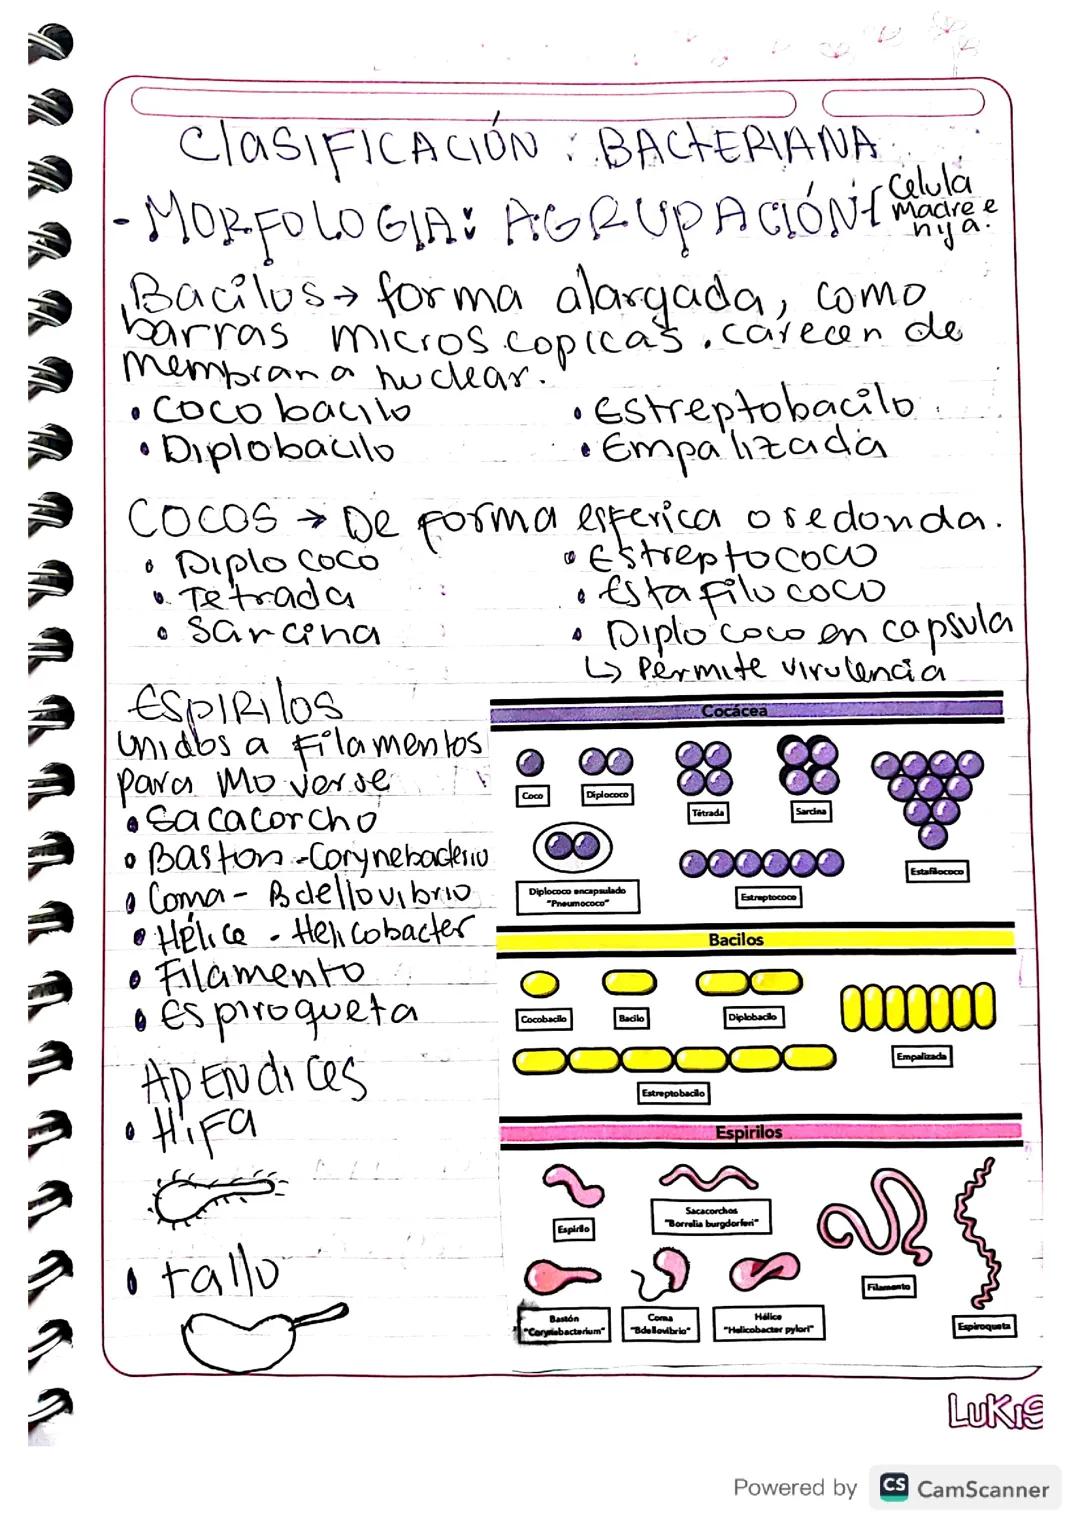 ClASIFICACIÓN : BACTERIANA
- MORFOLOGIA: AGRUPACIÓN{ Celula
madre e
hija.
Bacilos → forma alargada, como
barras microscopicas. carecen de
membrana nuclear.
• Cocobacilo
• Diplobacilo
• Estreptobacilo
• Empalizada
COCOS → De forma esferica o redonda.
• Diplococo
• Tetrada
• Sarcina
• Estreptococo
• Estafilococo
• Diplococo en capsula
↳ Permite virulencia
ESPIRIlOS
unidos a Filamentos
para Moverse
• Sacacorcho
• Baston - Corynebacterio
• Coma - Bdellovibrio
• Hélice - Helicobacter
• Filamento
• Espiroqueta
APENdiCes
• HiFa
• tallo
Cocácea
Coco
Diplococo
Tétrada
Sarcina
Estafilococo
Diplococo encapsulado
"Pneumococo"
Estreptococo
Bacilos
Cocobacilo
Bacilo
Diplobacilo
Empalizada
Estreptobacilo
Espirilos
Espirilo
Sacacorchos
"Borrelia burgdorferi"
Filamento
Espiroqueta
Bastón
"Corynebacterium"
Coma
"Bdellovibrio"
Hélice
"Helicobacter pylori"
LuKiS
Powered by CS CamScanner